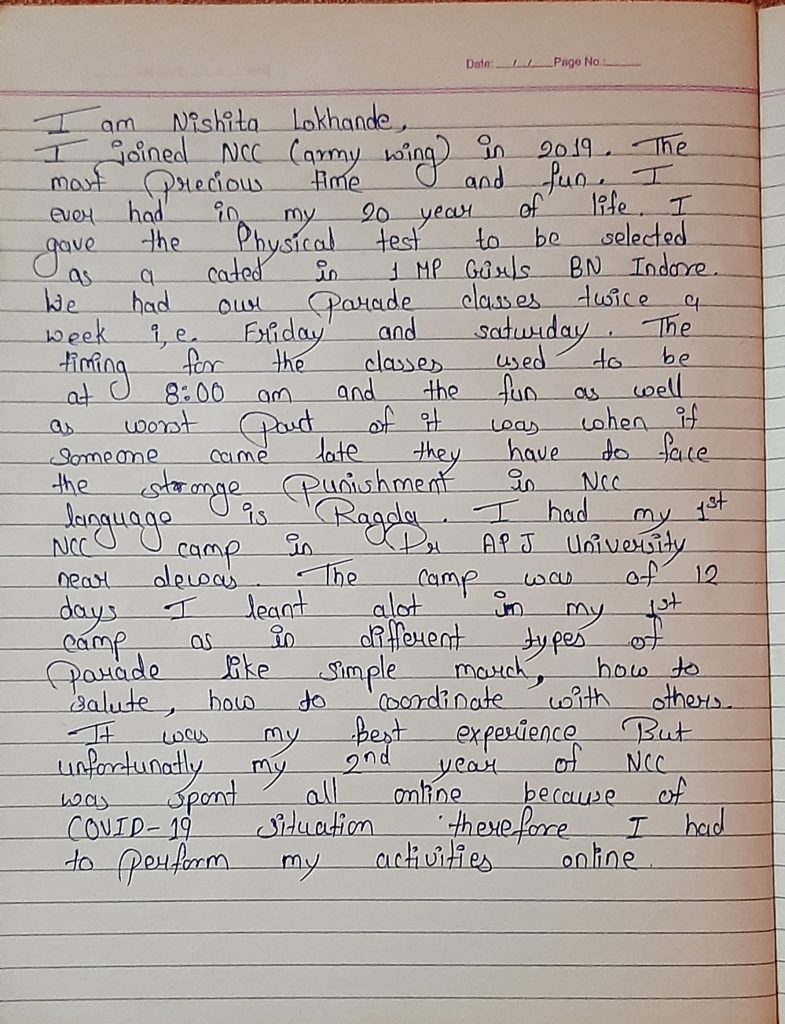 Date: __/__/____ Page No.:______
I am Nishita Lokhande,
I joined NCC (army wing) in 2019. The
most precious time and fun. I
ever had in my 20 year of life. I
gave the Physical test to be selected
as a cated in 1 MP Girls BN Indore.
We had our Parade classes twice a
week i,e. Friday and saturday. The
timing for the classes used to be
at 8:00 am and the fun as well
as worst part of it was when if
someone came late they have to face
the strange Punishment in NCC
language is Ragda. I had my 1st
NCC camp in Dr APJ University
near dewas. The camp was of 12
days I leant alot in my 1st
camp as in different types of
parade like simple march, how to
salute, how to coordinate with others.
It was my best experience But
unfortunatly my 2nd year of NCC
was spont all online because of
COVID-19 situation therefore I had
to perform my activities online.